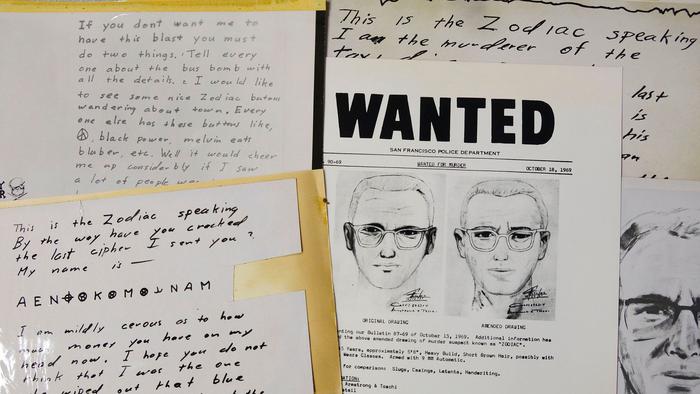 If you dont want me to
have this blast you must
do two things. Tell every
one about the bus bomb with
all the details. 2 I would like
to see some nice Zodiac butons
wandering about town. Every
one else has these buttons like,
☮, black power, melvin eats
bluber, etc. Well it would cheer
me up considerbly if I saw
a lot of people
This is the Zodiac speaking
By the way have you cracked
the last cipher I sent you?
My name is —
A E N ⊕ K M ⊥ N A M
I am mildly cerous as to how
money you have on my
head now. I hope you do not
think that I was the one
wiped out that blue
This is the Zodiac speaking
I am the murderer of the
last
is
his
WANTED
SAN FRANCISCO POLICE DEPARTMENT
90-69 WANTED FOR MURDER OCTOBER 18, 1969
ORIGINAL DRAWING AMENDED DRAWING
our Bulletin 87-69 of October 15, 1969. Additional information has
the above amended drawing of murder suspect known as "ZODIAC".
Years, approximately 5'8", Heavy Build, Short Brown Hair, possibly with
Wears Glasses. Armed with 9 MM Automatic.
for comparison: Slugs, Casings, Latents, Handwriting.
Armstrong & Toschi